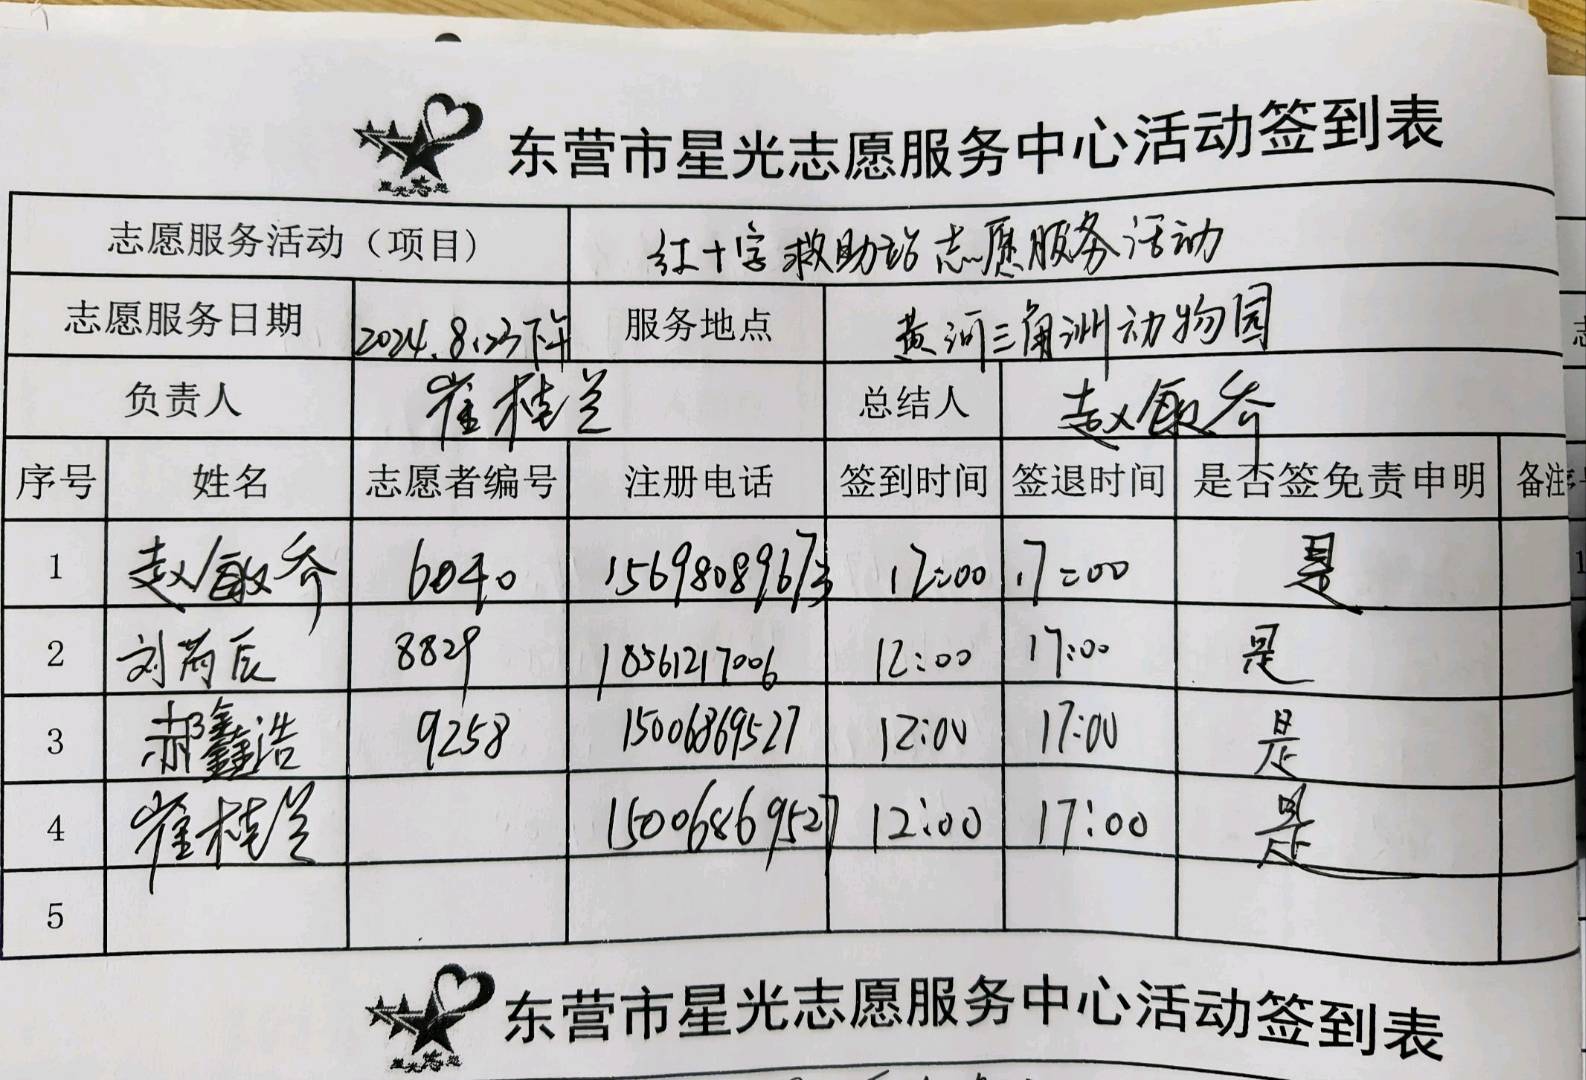 东营市星光志愿服务中心活动签到表
星光志愿
志愿服务活动（项目） 红十字救助站志愿服务活动
志愿服务日期 2024.8.23下午 服务地点 黄河三角洲动物园
负责人 崔桂兰 总结人 赵敏乔
序号 姓名 志愿者编号 注册电话 签到时间 签退时间 是否签免责申明 备注
1 赵敏乔 6040 15698089673 12:00 17:00 是
2 刘芮辰 8829 18561217006 12:00 17:00 是
3 郝鑫浩 9258 15006869527 12:00 17:00 是
4 崔桂兰 15006869527 12:00 17:00 是
5
东营市星光志愿服务中心活动签到表
星光志愿